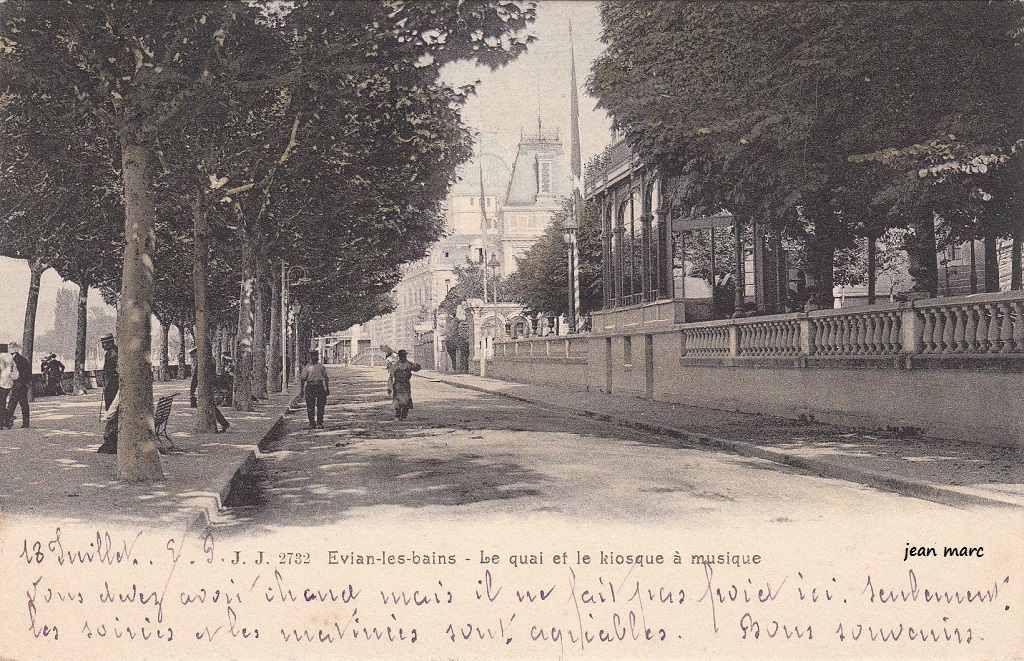 18 Juillet. E. P. J. J. 2732 Evian-les-bains - Le quai et le kiosque à musique
jean marc
Vous devez avoir chaud mais il ne fait pas froid ici. seulement
les soirées et les matinées sont agréables. Bons souvenirs.